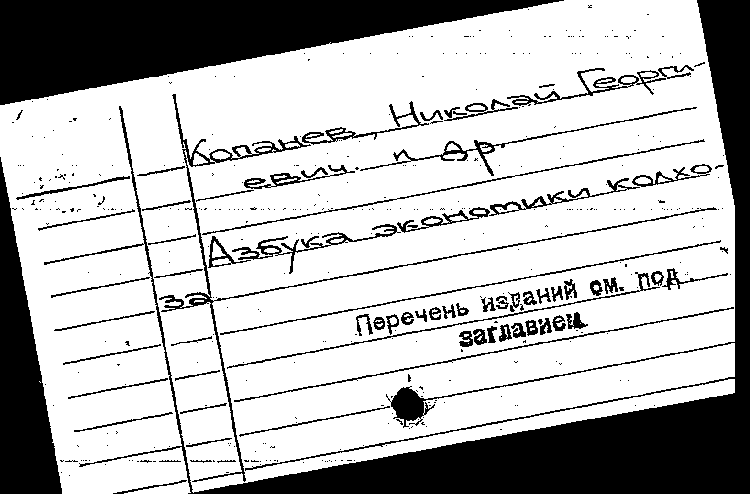 Копанев, Николай Георги-
евич. и др.
Азбука экономики колхо-
за
Перечень изданий см. под
заглавием